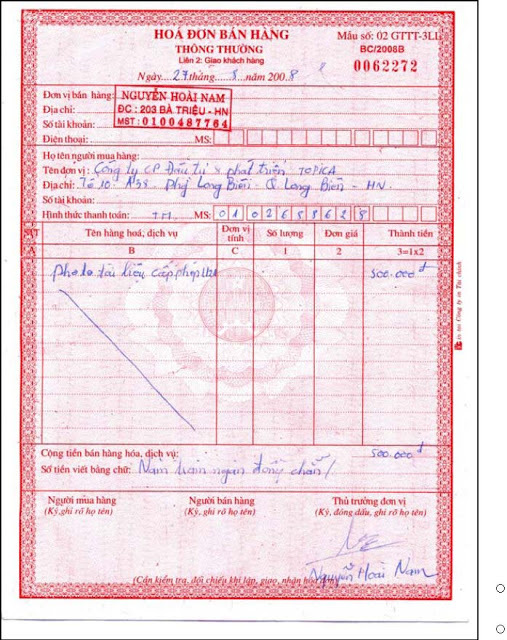 HOÁ ĐƠN BÁN HÀNG
THÔNG THƯỜNG
Liên 2: Giao khách hàng
Mẫu số: 02 GTTT-3LL
BC/2008B
0062272
Ngày....27tháng.....8....năm 2008
Đơn vị bán hàng: NGUYỄN HOÀI NAM
Địa chỉ: ĐC : 203 BÀ TRIỆU - HN
Số tài khoản: MST : 0100487764
Điện thoại: MS:
Họ tên người mua hàng:
Tên đơn vị : Công ty CP Đầu tư & phát triển TOPICA
Địa chỉ: Tổ 10 - P. Long Biên - Q Long Biên - HN
Số tài khoản:
Hình thức thanh toán: TM MS:
STT Tên hàng hoá, dịch vụ Đơn vị tính Số lượng Đơn giá Thành tiền
A B C 1 2 3=1x2
photo tài liệu cấp phép 500.000đ
Cộng tiền bán hàng hóa, dịch vụ: 500.000đ
Số tiền viết bằng chữ: Năm trăm ngàn đồng chẵn/
Người mua hàng Người bán hàng Thủ trưởng đơn vị
(Ký, ghi rõ họ tên) (Ký, ghi rõ họ tên) (Ký, đóng dấu, ghi rõ họ tên)
Nguyễn Hoài Nam
(Cần kiểm tra, đối chiếu khi lập, giao, nhận hoá đơn)